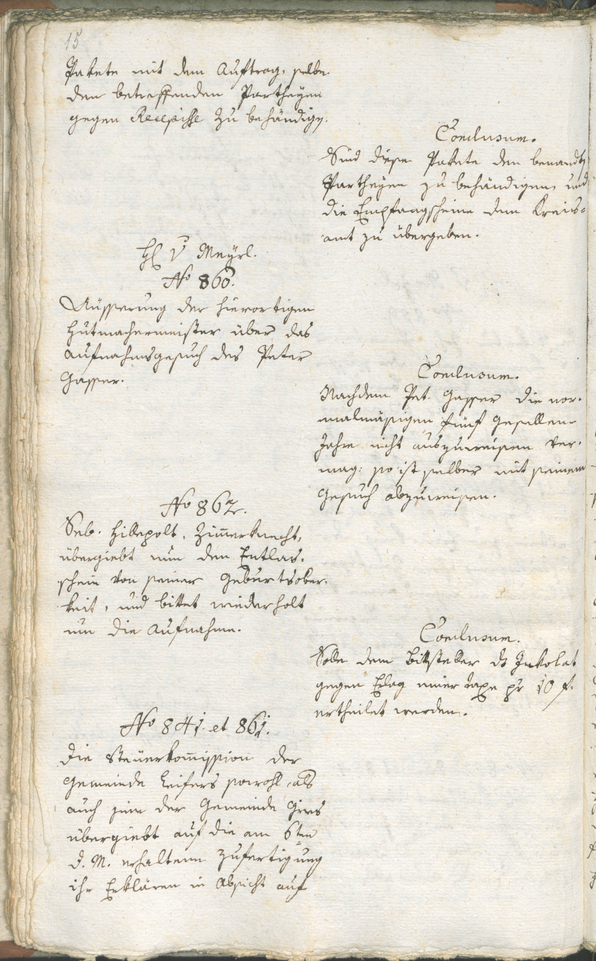 15
Pakete mit dem Auftrag, selbe
den betreffenden Partheyen
gegen Recepisse zu behändigen.
Conclusum.
Sind diese Pakete den benandten
Partheyen zu behändigen, und
die Empfangscheine dem Kreis-
amt zu übergeben.
H v Mayrl.
No 860.
Äusserung der hierortigen
Hutmachermeister über das
Aufnahmsgesuch des Peter
Gasser.
Conclusum.
Nachdem Pet. Gasser die nor-
malmäsigen fünf Gesellen-
Jahre nicht auszuweisen ver-
mag: so ist selber mit seinem
Gesuch abzuweisen.
No 862.
Seb. Hillepolt, Zimerknecht,
übergiebt nun den Entlas-
schein von seiner Geburtsober-
keit, und bittet wiederholt
um die Aufnahme.
Conclusum.
Solle dem Bittsteller ds Inkolat
gegen Erlag einer Taxe pr 10 f.
ertheilet werden.
No 841. et 861.
Die Steuerkomission der
Gemeinde Leifers sowohl als
auch jene der Gemeinde Gries
übergiebt auf die am 6ten
d. M. erhaltene Zufertigung
ihr Erklären in Absicht auf